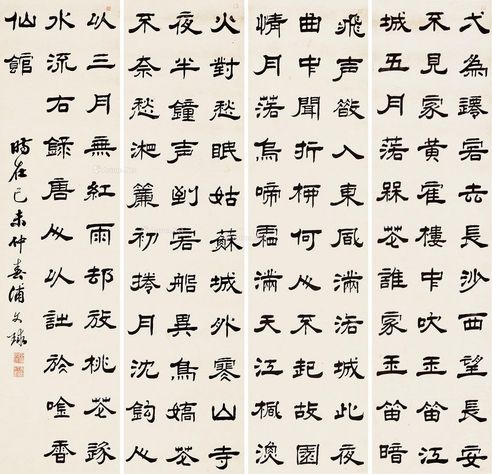 弌為遷客去長沙西望長安
不見家黃雀樓中吹玉笛江
城五月落槑花誰家玉笛暗
飛声欲入東風滿洛城此夜
曲中聞折柳何人不起故園
情月落烏啼霜滿天江楓漁
火對愁眠姑蘇城外寒山寺
夜半鐘声到客船異鳥嬌花
不奈愁湘簾初捲月沈鈎人
以三月無紅雨却放桃花逐
水流右錄唐人以於唫香
仙館
時在己未仲春浦文球